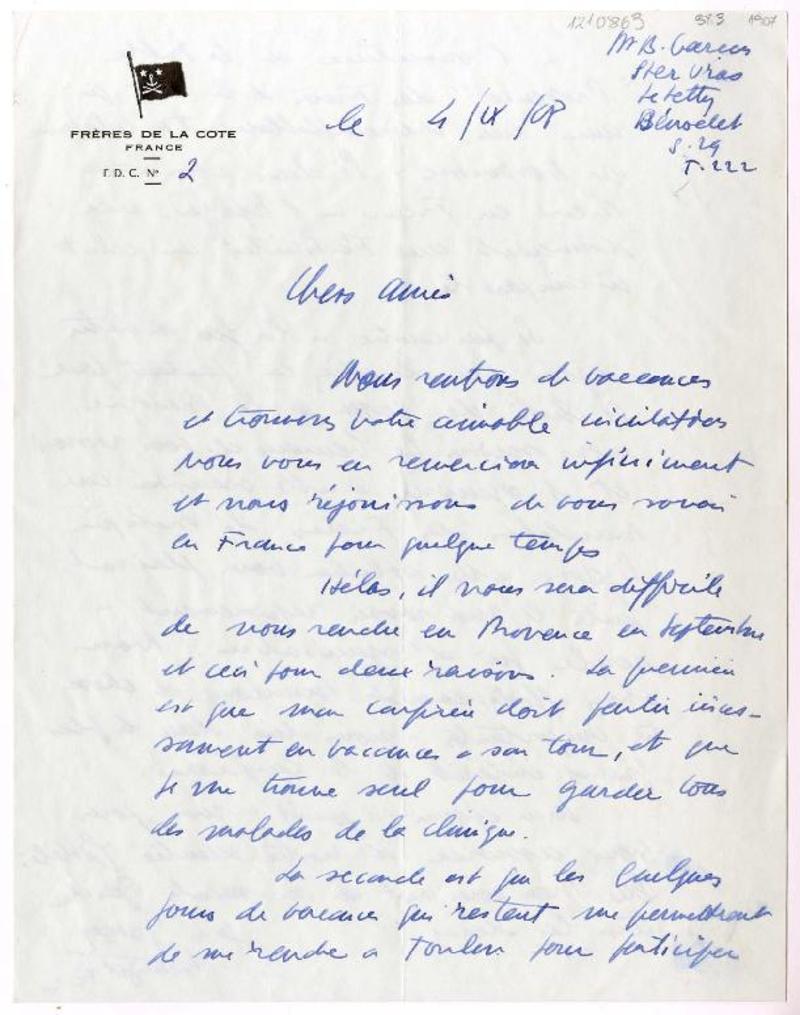 1210863 1907
FRÈRES DE LA COTE
FRANCE
F. D. C. Nº 2
le 4/IX/68
Mr B.
Ster Vras
Le Letty
Bénodet
S. 29
T. 222
Chers amis
Nous rentrons de vacances
et trouvons votre aimable invitation
Nous vous en remercions infiniment
et nous réjouissons de vous savoir
en France pour quelque temps
Hélas, il nous sera difficile
de nous rendre en Provence en Septembre
et ceci pour deux raisons. La première
est que mon confrère doit partir inces-
samment en vacances à son tour, et que
je me trouve seul pour garder tous
les malades de la clinique.
La seconde est que les quelques
jours de vacances qui restent me permettront
de me rendre à Toulon pour participer